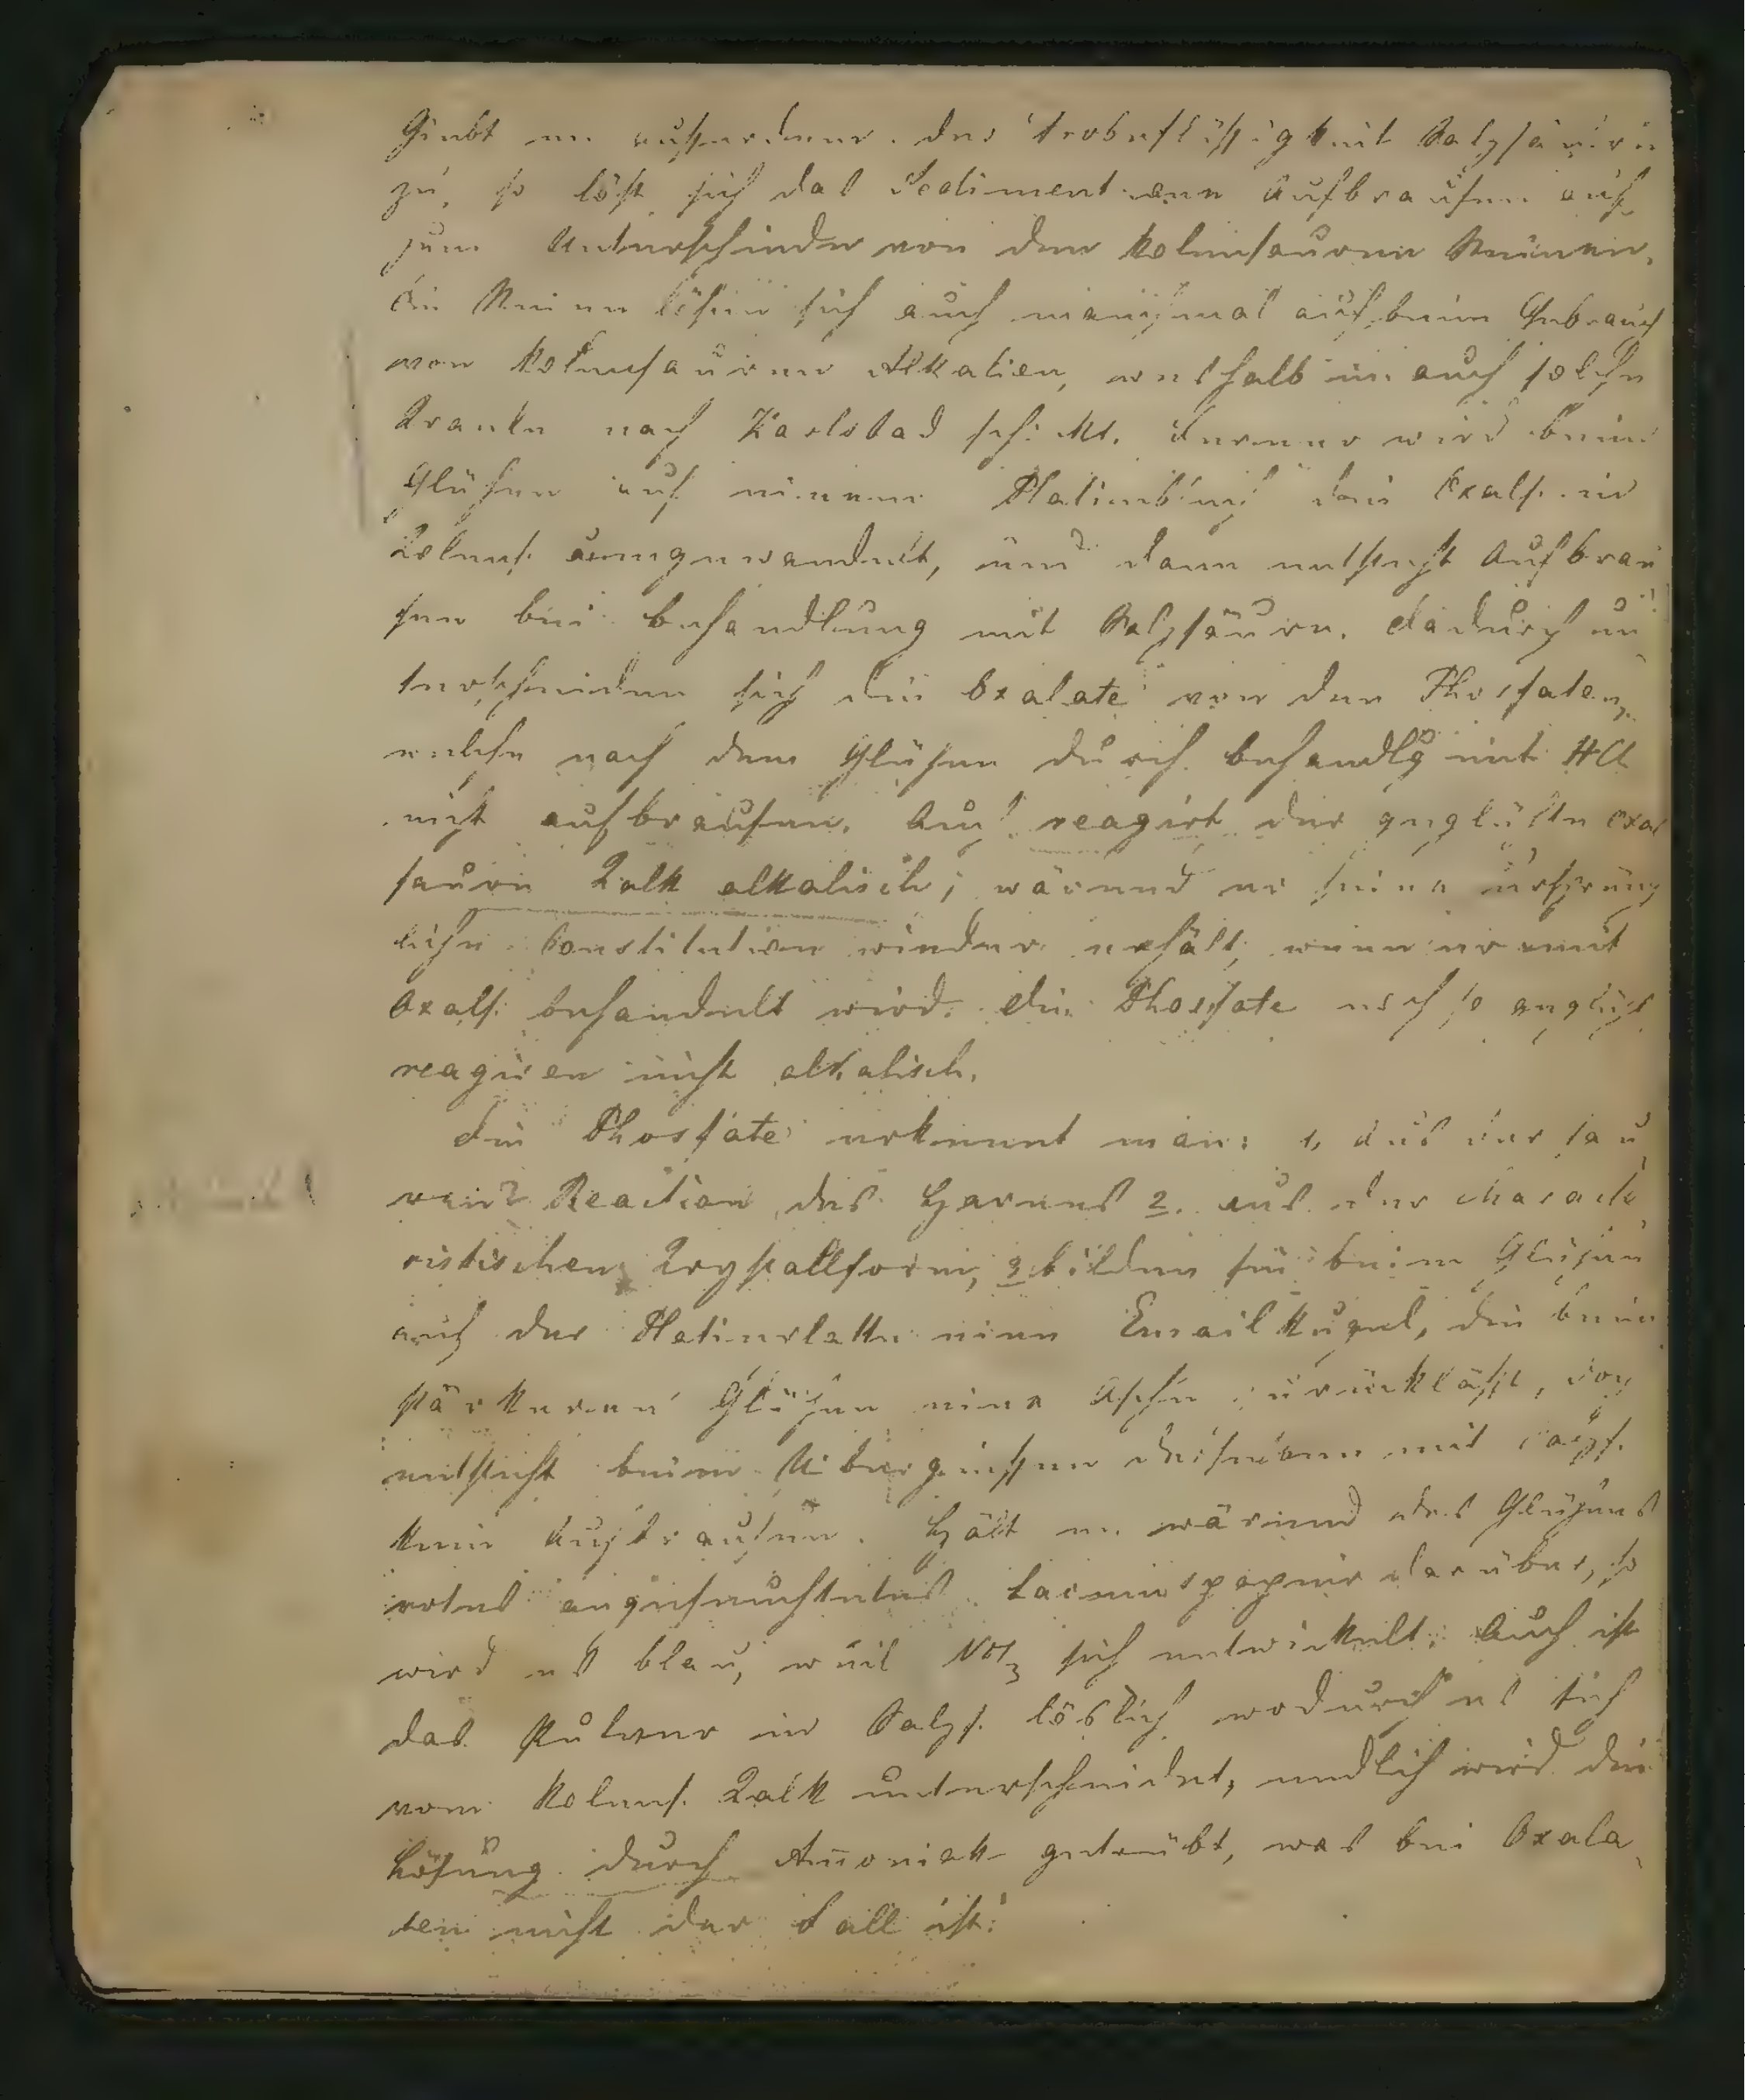 Giebt m. ausserdem der Probeflüssigkeit Salzsäure
zu, so löst sich das Sediment ohne Aufbrausen auf
zum Unterschiede von den kolensauren Steinen.
Die Steine lösen sich auch manchmal auf beim Gebrauch
von kolensauren Alkalien, weshalb m. auch solche
Kranke nach Karlsbad schickt. Ferner wird beim
Glühen auf einem Platinblech die Oxals. in
Kolens. umgewandelt, und dann entsteht Aufbrau
sen bei behandlung mit Salzsäure. Dadurch un
terscheiden sich die Oxalate von den Phosfaten,
welche nach dem Glühen durch behandlg mit HCl
nicht aufbrausen. Auch reagirt der geglühte Oxal
saure Kalk alkalisch; wärend er seine ursprüng
liche Constitution wieder erhält, wenn er mit
Oxals. behandelt wird. Die Phosfate noch so geglüht
reagiren nicht alkalisch.
Die Phosfate erkennt man: 1, aus der sau
ren? Reaction des Harnes 2. aus der characte
ristischen Krystallform, 3 bilden sie beim Glühen
auf der Platinplatte eine Emailkugel, die beim
stärkeren Glühen eine Asche zurücklässt, doch
entsteht beim Übergiessen derselben mit Salzs.
kein Aufbrausen. Hält m. wärend des Glühens
rotes angefeuchtetes Lacmuspapier darüber, so
wird es blau, weil NH3 sich entwickelt. Auch ist
das Pulver in Salzs. löslich wodurch es sich
vom kolens. Kalk unterscheidet, endlich wird die
Lösung durch Amoniak getrübt, was bei Oxala
ten nicht der Fall ist.